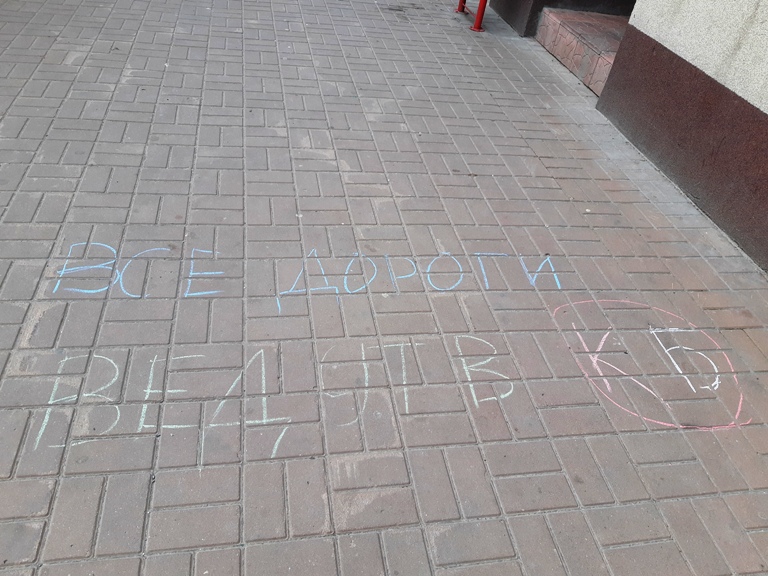 ВСЕ ДОРОГИ
ВЕДУТ В КБ